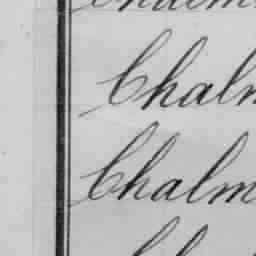 Chalm
Chalm